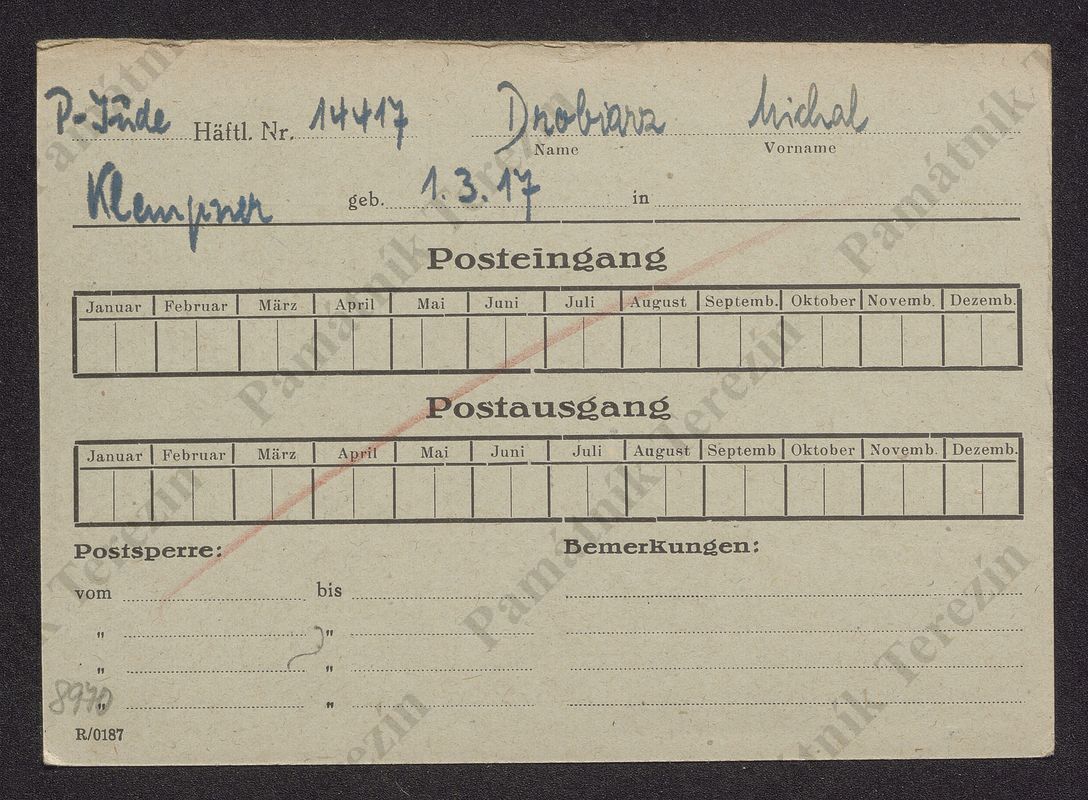 P-Jude Häftl. Nr. 14417 Drobiarz Michal
Name Vorname
Klempner geb. 1.3.17 in
Posteingang
Januar Februar März April Mai Juni Juli August Septemb. Oktober Novemb. Dezemb.
Postausgang
Januar Februar März April Mai Juni Juli August Septemb Oktober Novemb. Dezemb.
Postsperre: Bemerkungen:
vom bis
" "
" "
8970 " "
R/0187
Památník Terezín
Památník Terezín
Památník Terezín
Památník Terezín